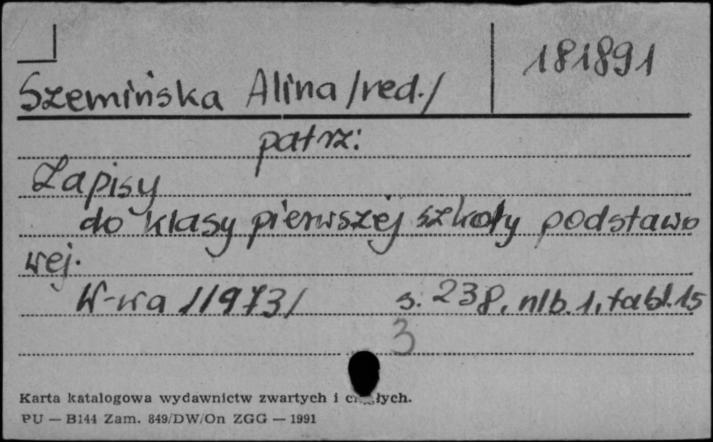 181891
Szemińska Alina /red./
patrz:
Zapisy
do klasy pierwszej szkoły podstawo
wej.
W-wa /1973/ s. 238, nlb. 1, tabl. 15
3
Karta katalogowa wydawnictw zwartych i
PU — B144 Zam. 849/DW/On ZGG — 1991